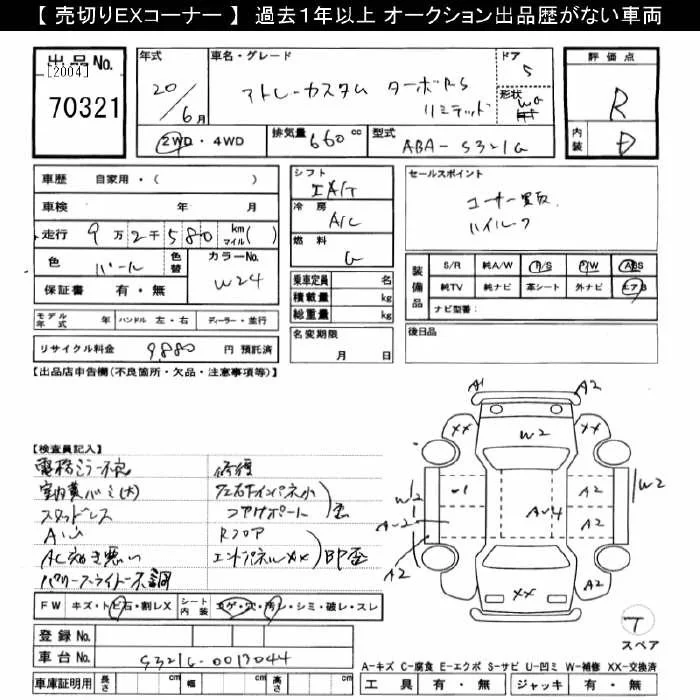 【 売切りEXコーナー 】 過去1年以上 オークション出品歴がない車両
出品No.
[2004]
70321
年式
20/6月
車名・グレード
アトレーカスタム ターボRS
リミテッド
ドア
5
形状
評価点
R
内装
D
2WD・4WD
排気量 660 cc
型式 ABA-S321G
車歴 自家用・( )
車検 年 月
走行 9万2千580 km マイル( )
色 パール 色替 カラーNo. W24
保証書 有・無
モデル年式 年 ハンドル 左・右 ディーラー・並行
リサイクル料金 9,880 円 預託済
シフト
冷房 A/C
燃料 G
乗車定員 名
積載量 kg
総重量 kg
名変期限
月 日
セールスポイント
コーナー買取
ハイルーフ
装備品
S/R 純A/W P/S P/W ABS
純TV 純ナビ 革シート 外ナビ エアB
ナビ型番:
後日品
【出品店申告欄(不良箇所・欠品・注意事項等)】
【検査員記入】
電格ミラー不良
スタッドレス
AC効き悪い
修復
Rフロア
エンドパネルXX
FW キズ・トビ石・割レX シート内装 コゲ・穴・汚レ・シミ・破レ・スレ
登録No.
車台No. S321G-0013044
車庫証明用 長さ cm 幅 cm 高さ cm
A1 A2
XX XX
W2
W2 -1 A2 W2
A-2 A-4 A2
A2
XX A2
T
スペア
A-キズ C-腐食 E-エクボ S-サビ U-凹ミ W-補修 XX-交換済
工具 有・無 ジャッキ 有・無